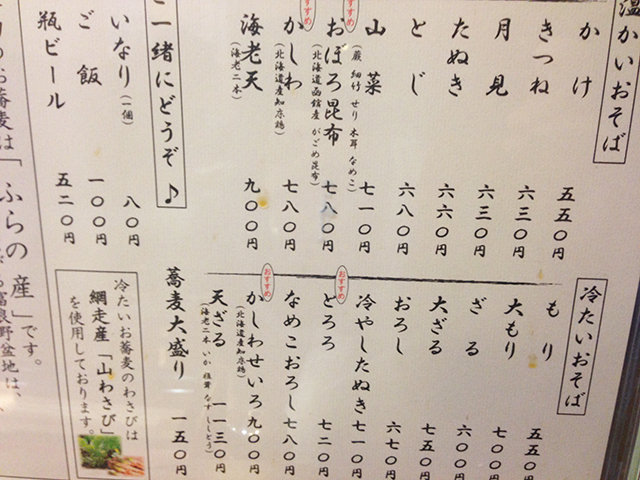 温かいおそば
かけ 五五〇円
きつね 六三〇円
月見 六三〇円
たぬき 六六〇円
とじ 六八〇円
山菜 七一〇円
(蕨 細竹 せり 木耳 なめこ)
おすすめ
おぼろ昆布 七八〇円
(北海道函館産 がごめ昆布)
おすすめ
かしわ 七八〇円
(北海道産知床鶏)
海老天 九〇〇円
(海老二本)
ご一緒にどうぞ♪
いなり(一個) 八〇円
ご飯 一〇〇円
瓶ビール 五二〇円
冷たいおそば
もり 五五〇円
大もり 七〇〇円
ざる 六〇〇円
大ざる 七五〇円
おろし 六七〇円
冷やしたぬき 七一〇円
おすすめ
とろろ 七二〇円
なめこおろし 七八〇円
おすすめ
かしわせいろ 九〇〇円
(北海道産知床鶏)
天ざる 一一三〇円
蕎麦大盛り 一五〇円
冷たいお蕎麦のわさびは
網走産「山わさび」
を使用しております。
のお蕎麦は「ふらの産」です。
富良野盆地は、